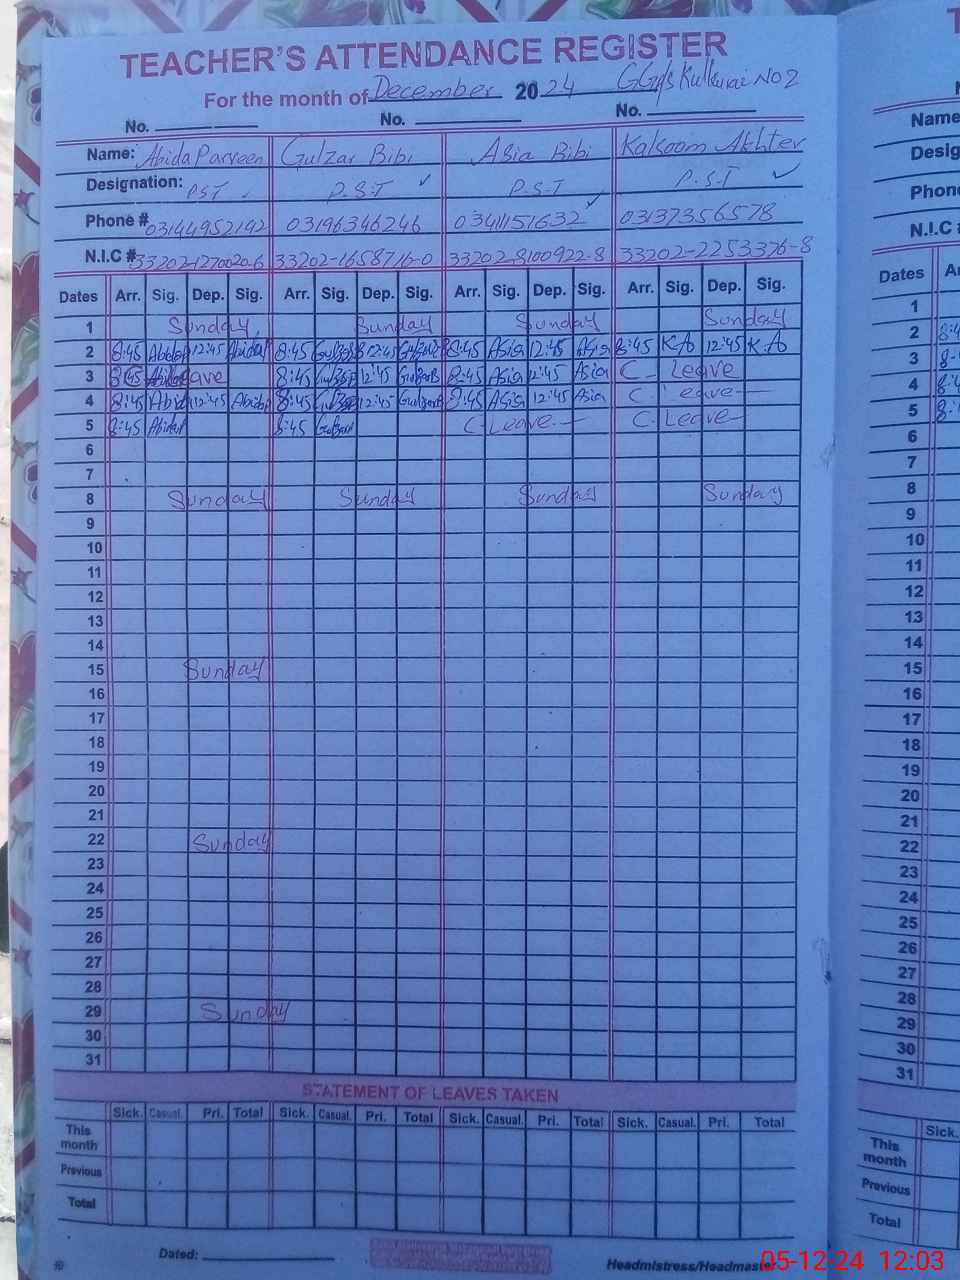 TEACHER'S ATTENDANCE REGISTER
For the month of December 2024 GGPS Kulkurai No 2
No. No. No.
Name: Abida Parveen Gulzar Bibi Asia Bibi Kalsoom Akhter
Designation: PST P.S.T P.S.T P.S.T
Phone # 03144952192 03196346246 03411151632 03137356578
N.I.C # 33202-1270020-6 33202-1658716-0 33202-8100922-8 33202-2253376-8
Dates Arr. Sig. Dep. Sig. Arr. Sig. Dep. Sig. Arr. Sig. Dep. Sig. Arr. Sig. Dep. Sig.
1 Sunday Sunday Sunday Sunday
2 8:45 Abida 12:45 Abida 8:45 GulzarB 12:45 GulzarB 8:45 Asia 12:45 Asia 8:45 K.A 12:45 K.A
3 Leave 8:45 GulzarB 12:45 GulzarB 8:45 Asia 12:45 Asia C. Leave
4 8:45 Abida 12:45 Abida 8:45 GulzarB 12:45 GulzarB 8:45 Asia 12:45 Asia C. Leave
5 8:45 Abida 8:45 GulzarB C. Leave C. Leave
6
7
8 Sunday Sunday Sunday Sunday
9
10
11
12
13
14
15 Sunday
16
17
18
19
20
21
22 Sunday
23
24
25
26
27
28
29 Sunday
30
31
STATEMENT OF LEAVES TAKEN
Sick. Casual. Pri. Total Sick. Casual. Pri. Total Sick. Casual. Pri. Total Sick. Casual. Pri. Total
This month
Previous
Total
Dated:
Headmistress/Headmaster
05-12-24 12:03
Name
Desig
Phone
N.I.C #
Dates
1
2 8:4
3 8:
4 8:4
5 8:
6
7
8
9
10
11
12
13
14
15
16
17
18
19
20
21
22
23
24
25
26
27
28
29
30
31
Sick.
This month
Previous
Total